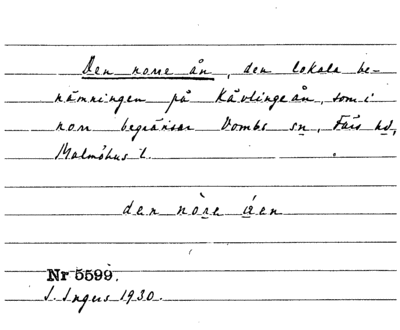 Den norre ån, den lokala be-
nämningen på Kävlingeån, som i
norr begränsar Vombs sn, Färs hd,
Malmöhus l.
den nòre åen
Nr 5599.
I. Ingers 1930.